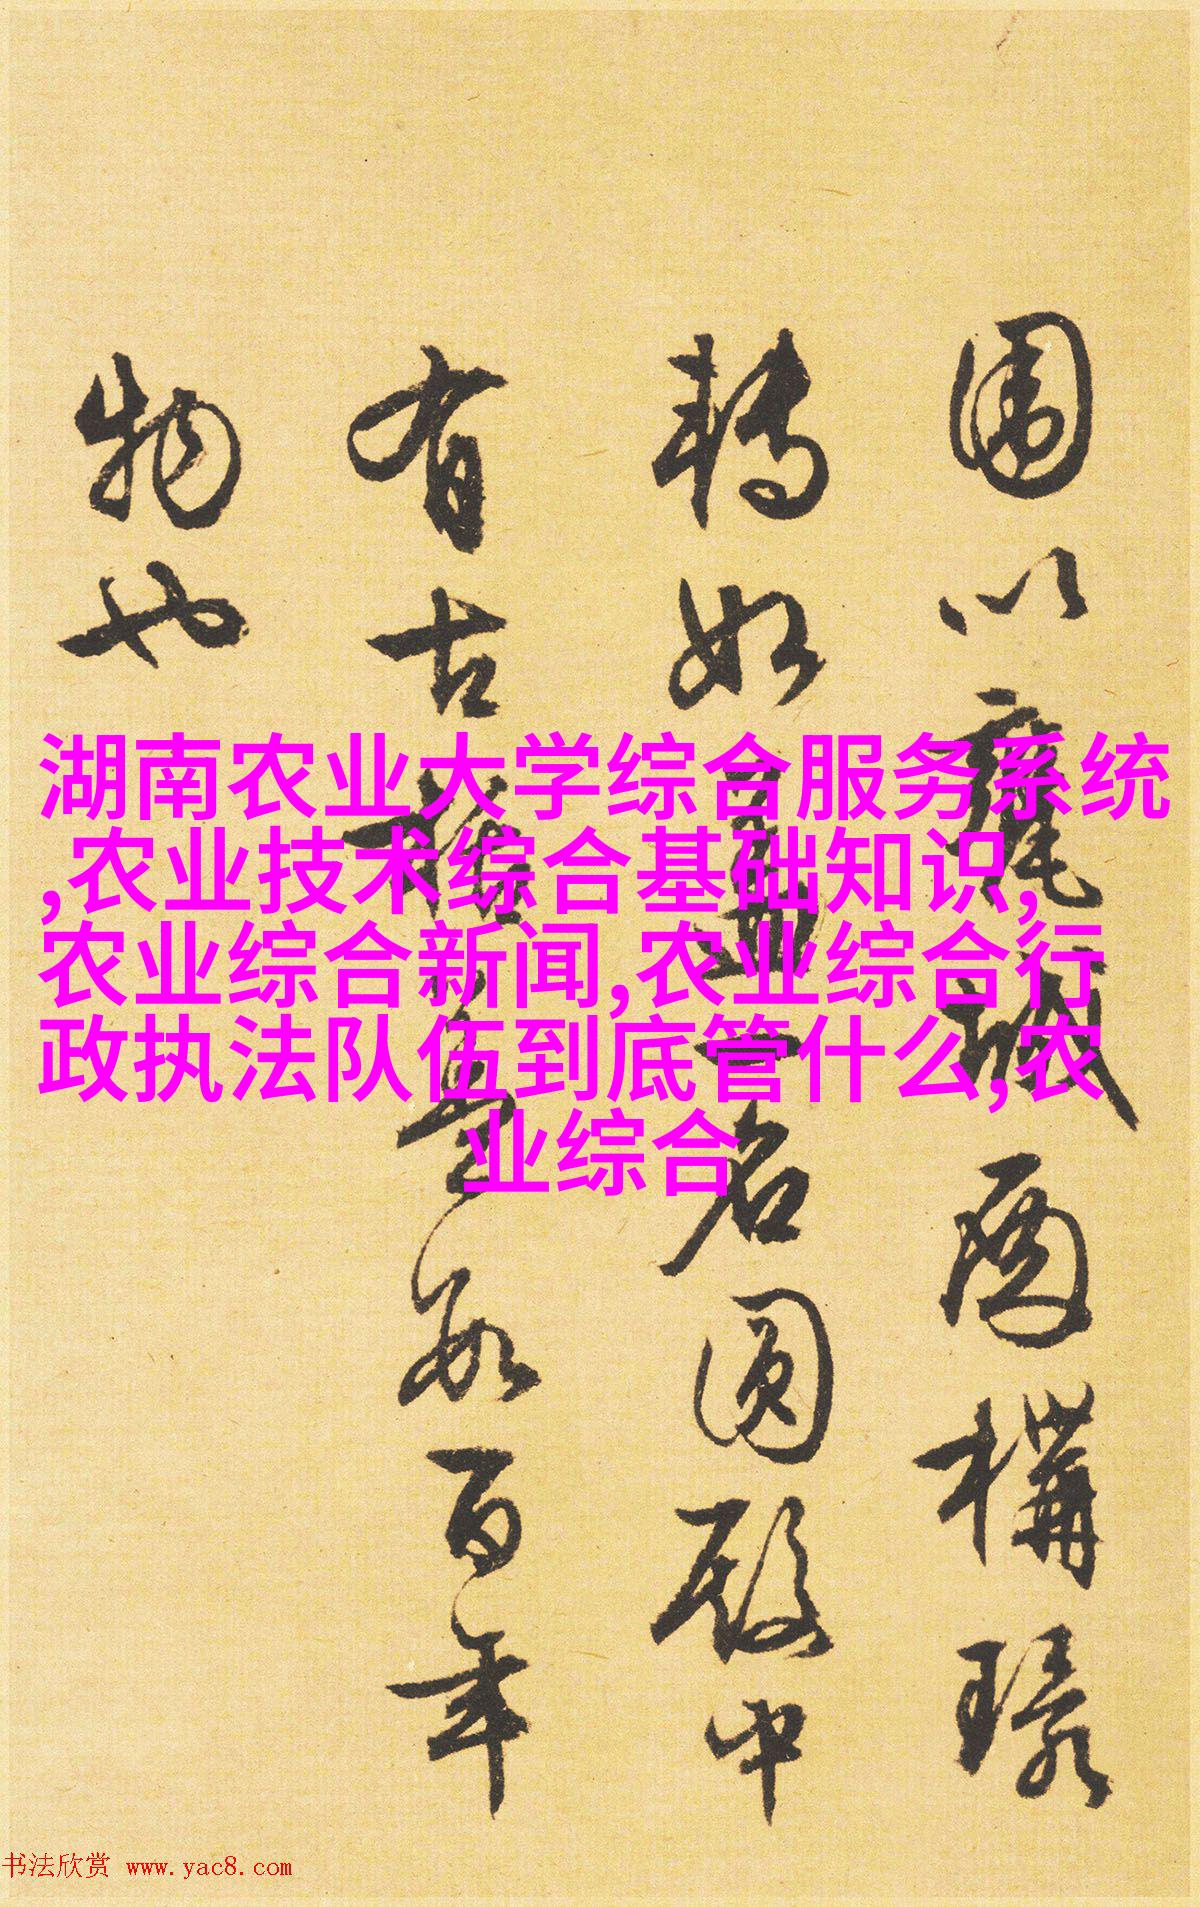 圍以城構環
轉如一名圓殿中
有古百年
物也
湖南农业大学综合服务系统
,农业技术综合基础知识,
农业综合新闻,农业综合行
政执法队伍到底管什么,农
业综合
书法欣赏 www.yac8.com